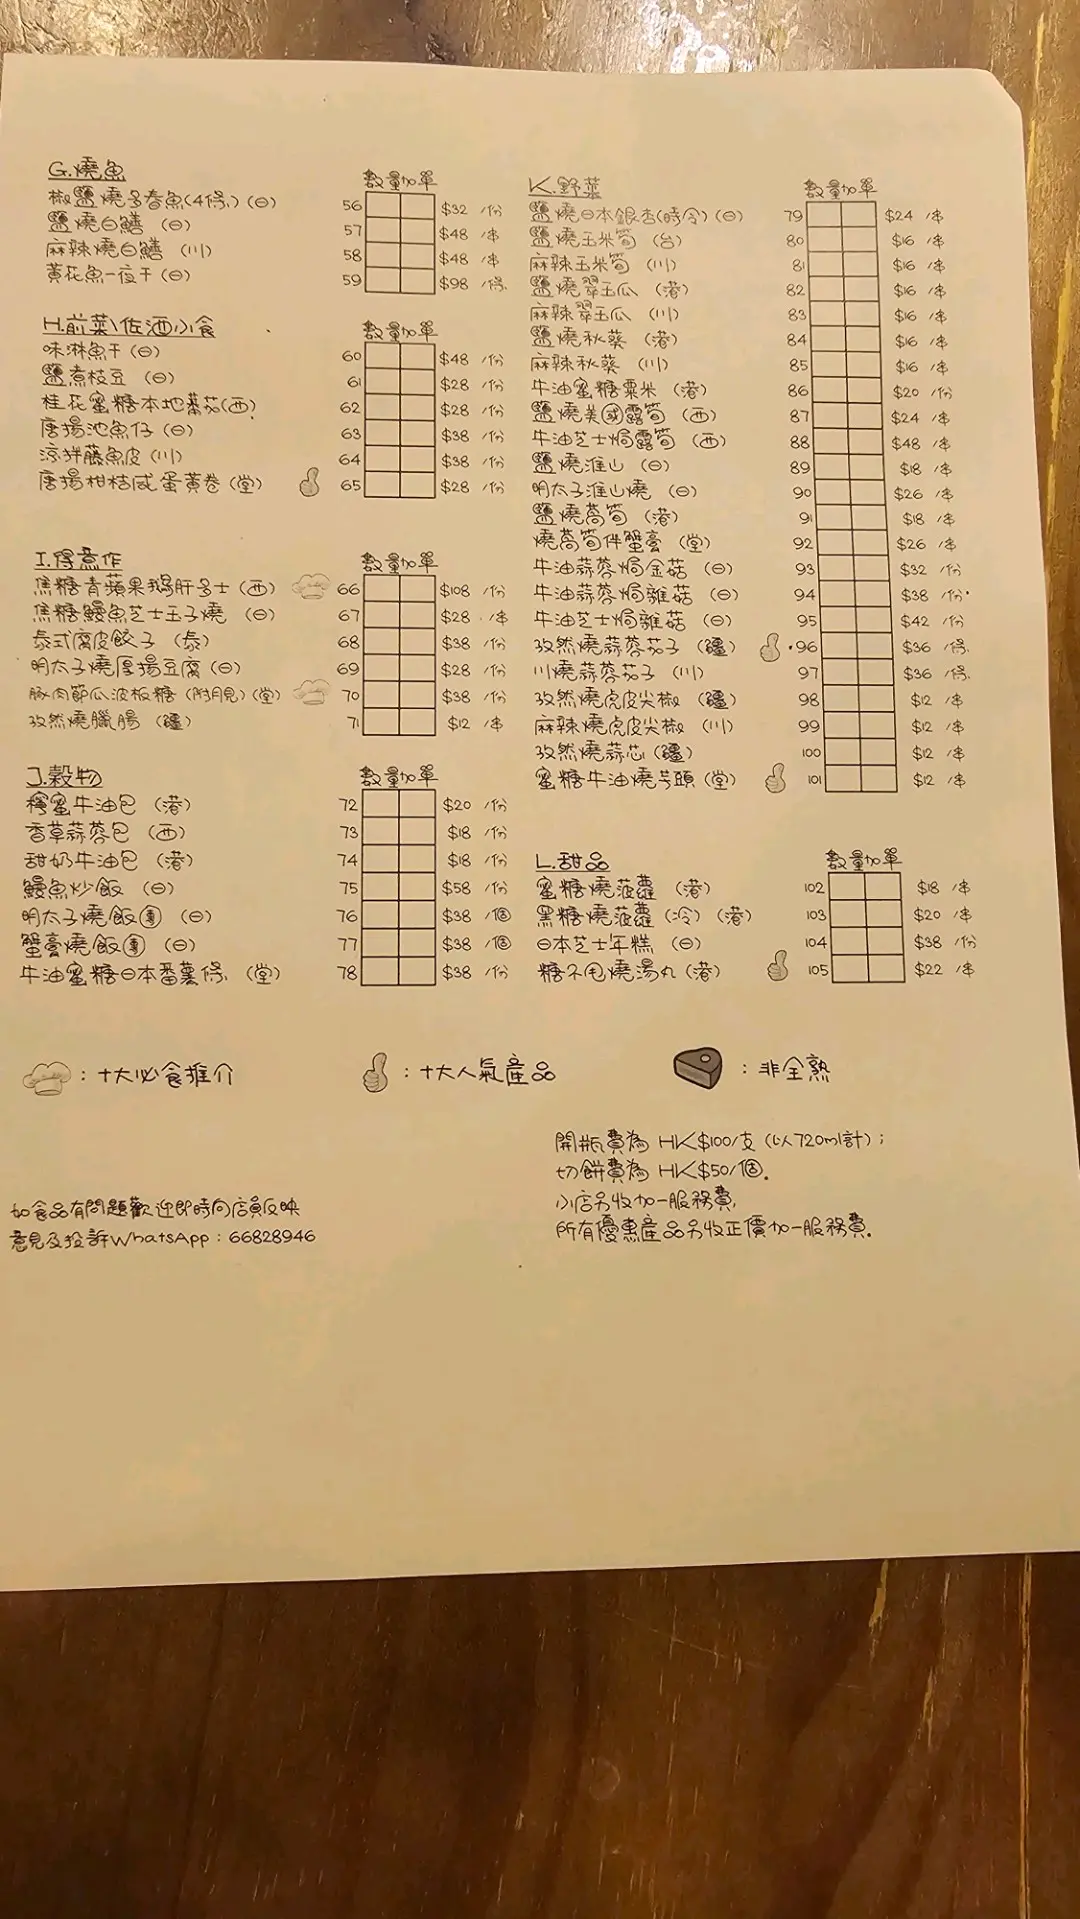 G.燒魚
數量加單
椒鹽燒多春魚(4條)(日) 56 $32 /份
鹽燒白鱔 (日) 57 $48 /串
麻辣燒白鱔 (川) 58 $48 /串
黃花魚一夜干(日) 59 $98 /條
H.前菜/佐酒小食
數量加單
味淋魚干(日) 60 $48 /份
鹽煮枝豆 (日) 61 $28 /份
桂花蜜糖本地蕃茄(西) 62 $28 /份
唐揚池魚仔(日) 63 $38 /份
涼拌藤魚皮(川) 64 $38 /份
唐揚柑桔咸蛋黃卷(堂) 65 $28 /份
I.得意作
數量加單
焦糖青蘋果鵝肝多士(西) 66 $108 /份
焦糖鰻魚芝士玉子燒 (日) 67 $28 /串
泰式腐皮餃子 (泰) 68 $38 /份
明太子燒厚揚豆腐(日) 69 $28 /份
豚肉節瓜波板糖 (附月見)(堂) 70 $38 /份
孜然燒臘腸 (疆) 71 $12 /串
J.穀物
數量加單
檸蜜牛油包 (港) 72 $20 /份
香草蒜蓉包 (西) 73 $18 /份
甜奶牛油包 (港) 74 $18 /份
鰻魚炒飯 (日) 75 $58 /份
明太子燒飯團 (日) 76 $38 /個
蟹膏燒飯團 (日) 77 $38 /個
牛油蜜糖日本番薯條 (堂) 78 $38 /份
K.野菜
數量加單
鹽燒日本銀杏(時令)(日) 79 $24 /串
鹽燒玉米筍 (台) 80 $16 /串
麻辣玉米筍 (川) 81 $16 /串
鹽燒翠玉瓜 (港) 82 $16 /串
麻辣翠玉瓜 (川) 83 $16 /串
鹽燒秋葵 (港) 84 $16 /串
麻辣秋葵 (川) 85 $16 /串
牛油蜜糖粟米 (港) 86 $20 /份
鹽燒美國露筍 (西) 87 $24 /串
牛油芝士焗露筍 (西) 88 $48 /串
鹽燒淮山 (日) 89 $18 /串
明太子淮山燒 (日) 90 $26 /串
鹽燒萵筍 (港) 91 $18 /串
燒萵筍伴蟹膏 (堂) 92 $26 /串
牛油蒜蓉焗金菇 (日) 93 $32 /份
牛油蒜蓉焗雜菇 (日) 94 $38 /份
牛油芝士焗雜菇 (日) 95 $42 /份
孜然燒蒜蓉茄子 (疆) 96 $36 /條
川燒蒜蓉茄子 (川) 97 $36 /條
孜然燒虎皮尖椒 (疆) 98 $12 /串
麻辣燒虎皮尖椒 (川) 99 $12 /串
孜然燒蒜芯 (疆) 100 $12 /串
蜜糖牛油燒芋頭 (堂) 101 $12 /串
L.甜品
數量加單
蜜糖燒菠蘿 (港) 102 $18 /串
黑糖燒菠蘿 (冷) (港) 103 $20 /串
日本芝士年糕 (日) 104 $38 /份
糖不甩燒湯丸(港) 105 $22 /串
:十大必食推介
:十大人氣產品
:非全熟
開瓶費為 HK$100/支 (以720ml計);
切餅費為 HK$50/個.
小店另收加一服務費,
所有優惠產品另收正價加一服務費.
如食品有問題歡迎即時向店員反映
意見及投訴WhatsApp:66828946